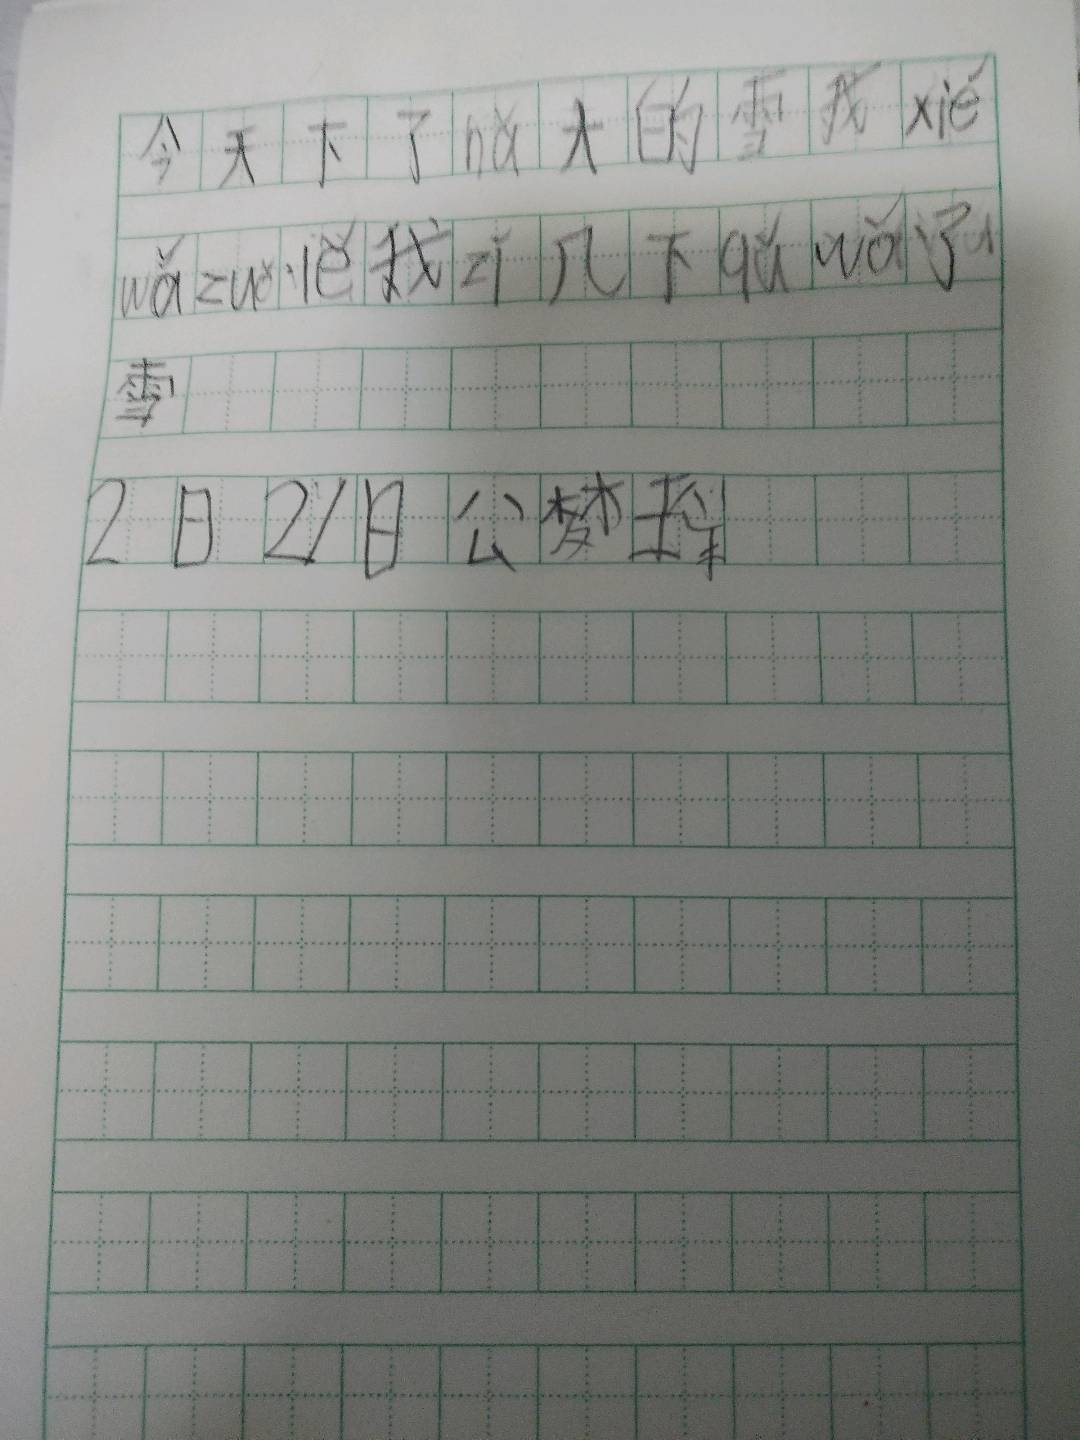 今天下了nǎ大的雪我xiě
wǎzuǒiě我zǐ几下qǔwǎ了
雪
2日21日公梦